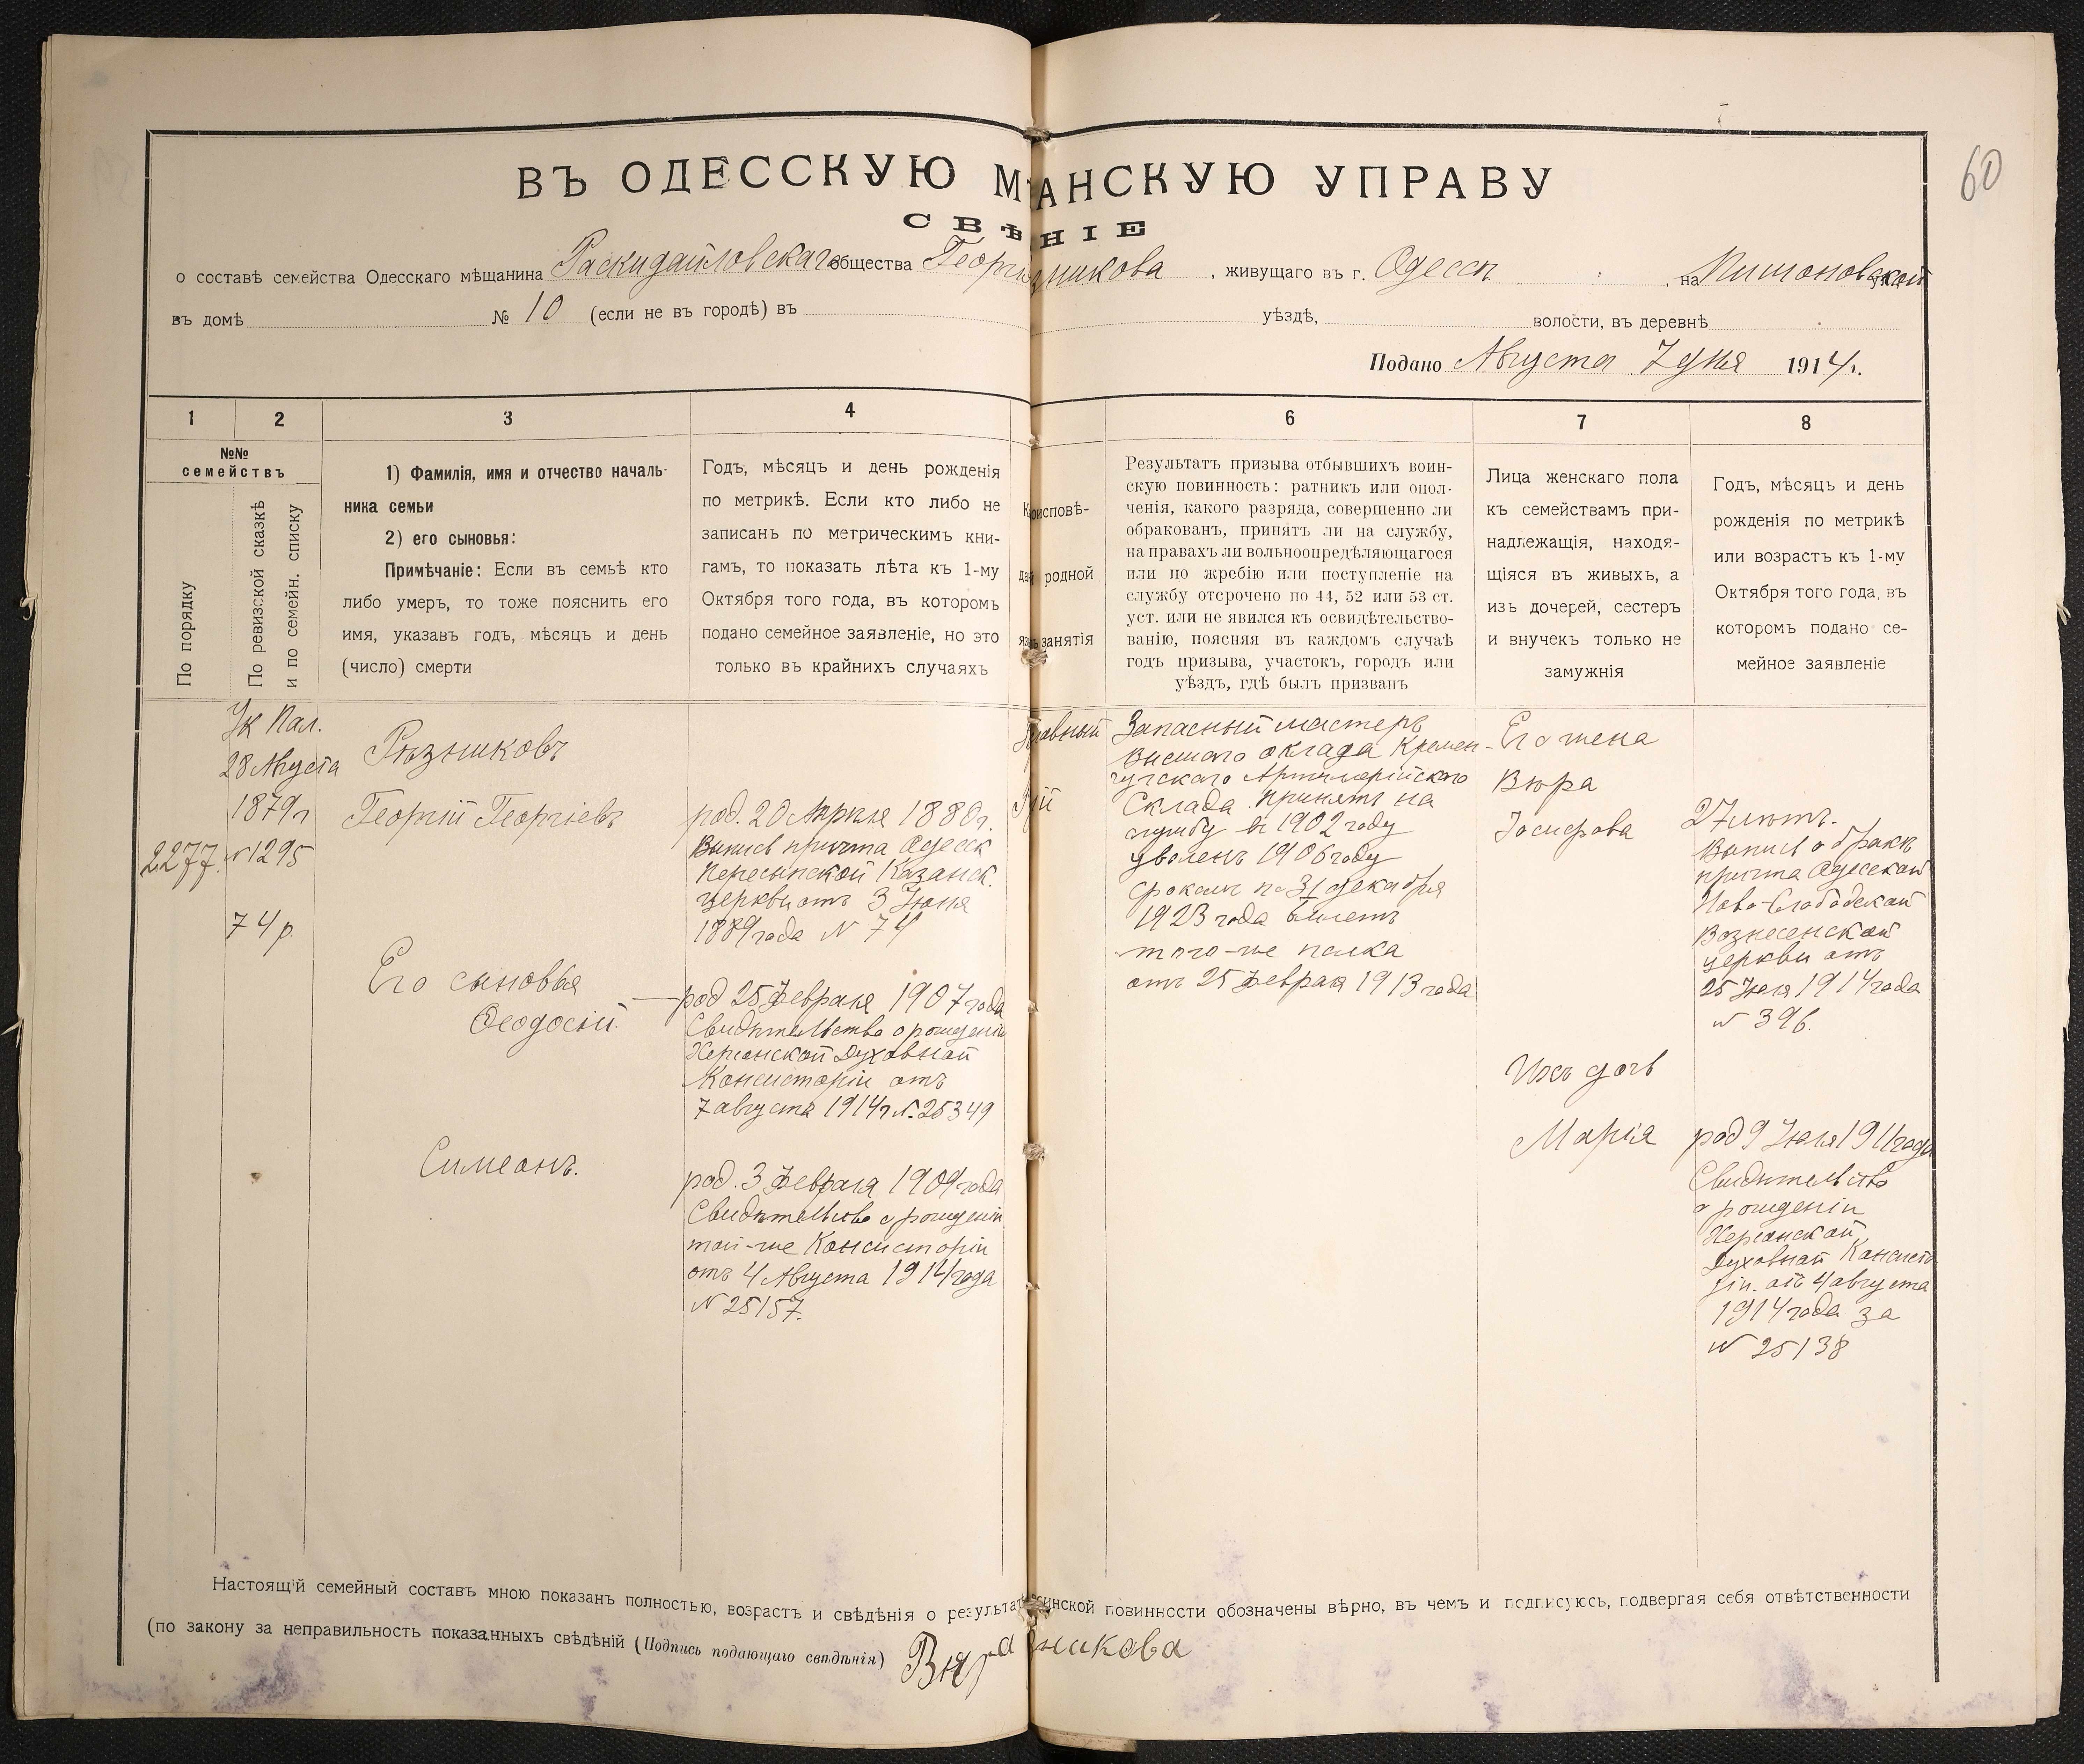 60
ВЪ ОДЕССКУЮ М АНСКУЮ УПРАВУ
СВѢ НІЕ
о составѣ семейства Одесскаго мѣщанина Раскидайловскаго общества Георгі зникова, живущаго въ г. Одессѣ, на
въ домѣ № 10 (если не въ городѣ) въ уѣздѣ, волости, въ деревнѣ
Подано Августа 7 дня 1914 г.
1 2 3 4 6 7 8
№№
семействъ
По порядку
По ревизской сказкѣ
и по семейн. списку
1) Фамилія, имя и отчество началь-
ника семьи
2) его сыновья:
Примѣчаніе: Если въ семьѣ кто
либо умеръ, то тоже пояснить его
имя, указавъ годъ, мѣсяцъ и день
(число) смерти
Годъ, мѣсяцъ и день рожденія
по метрикѣ. Если кто либо не
записанъ по метрическимъ кни-
гамъ, то показать лѣта къ 1-му
Октября того года, въ которомъ
подано семейное заявленіе, но это
только въ крайнихъ случаяхъ
исповѣ-
родной
занятія
Результатъ призыва отбывшихъ воин-
скую повинность: ратникъ или опол-
ченія, какого разряда, совершенно ли
обракованъ, принятъ ли на службу,
на правахъ ли вольноопредѣляющагося
или по жребію или поступленіе на
службу отсрочено по 44, 52 или 53 ст.
уст. или не явился къ освидѣтельство-
ванію, поясняя въ каждомъ случаѣ
годъ призыва, участокъ, городъ или
уѣздъ, гдѣ былъ призванъ
Лица женскаго пола
къ семействамъ при-
надлежащія, находя-
щіяся въ живыхъ, а
изъ дочерей, сестеръ
и внучекъ только не
замужнія
Годъ, мѣсяцъ и день
рожденія по метрикѣ
или возрастъ къ 1-му
Октября того года, въ
которомъ подано се-
мейное заявленіе
2277.
Ук Пал.
28 Августа
1879 г
№ 1295
74 р.
Рѣзниковъ
Георгій Георгіевъ
Его сыновья
Ѳеодосій.
Симеонъ.
род. 20 Апрѣля 1880 г.
Выпись причта Одесск
Пересыпской Казанск.
церкви отъ 3 Іюня
1889 года № 74
род 25 Февраля 1907 года
Свидѣтельство о рожденіи
Херсонской Духовной
Консисторіи отъ
7 августа 1914 г № 25349
род. 3 Февраля 1909 года
Свидѣтельство о рожденіи
той-же Консисторіи
отъ 4 Августа 1914 года
№ 25157.
авный
Запасный мастеръ
высшаго оклада Кремен-
чугскаго Артиллерійскаго
Склада. Принятъ на
службу въ 1902 году
уволенъ 1906 году
срокомъ по 31 декабря
1923 года билетъ
того-же полка
отъ 25 Февраля 1913 года
Его жена
Вѣра
Іосифова
Ихъ дочь
Марія
27 лѣтъ.
Выпись о бракѣ
причта Одесской
Ново-Слободской
Вознесенской
церкви отъ
25 Іюля 1914 года
№ 396.
род 9 Іюля 1911 года
Свидѣтельство
о рожденіи
Херсонской
Духовной Консисто
ріи. отъ 4 августа
1914 года за
№ 25138
Настоящій семейный составъ мною показанъ полностью, возрастъ и свѣдѣнія о результат инской повинности обозначены вѣрно, въ чемъ и подписуюсь, подвергая себя отвѣтственности
(по закону за неправильность показанныхъ свѣдѣній (Подпись подающаго свѣдѣнія) Вѣра зникова